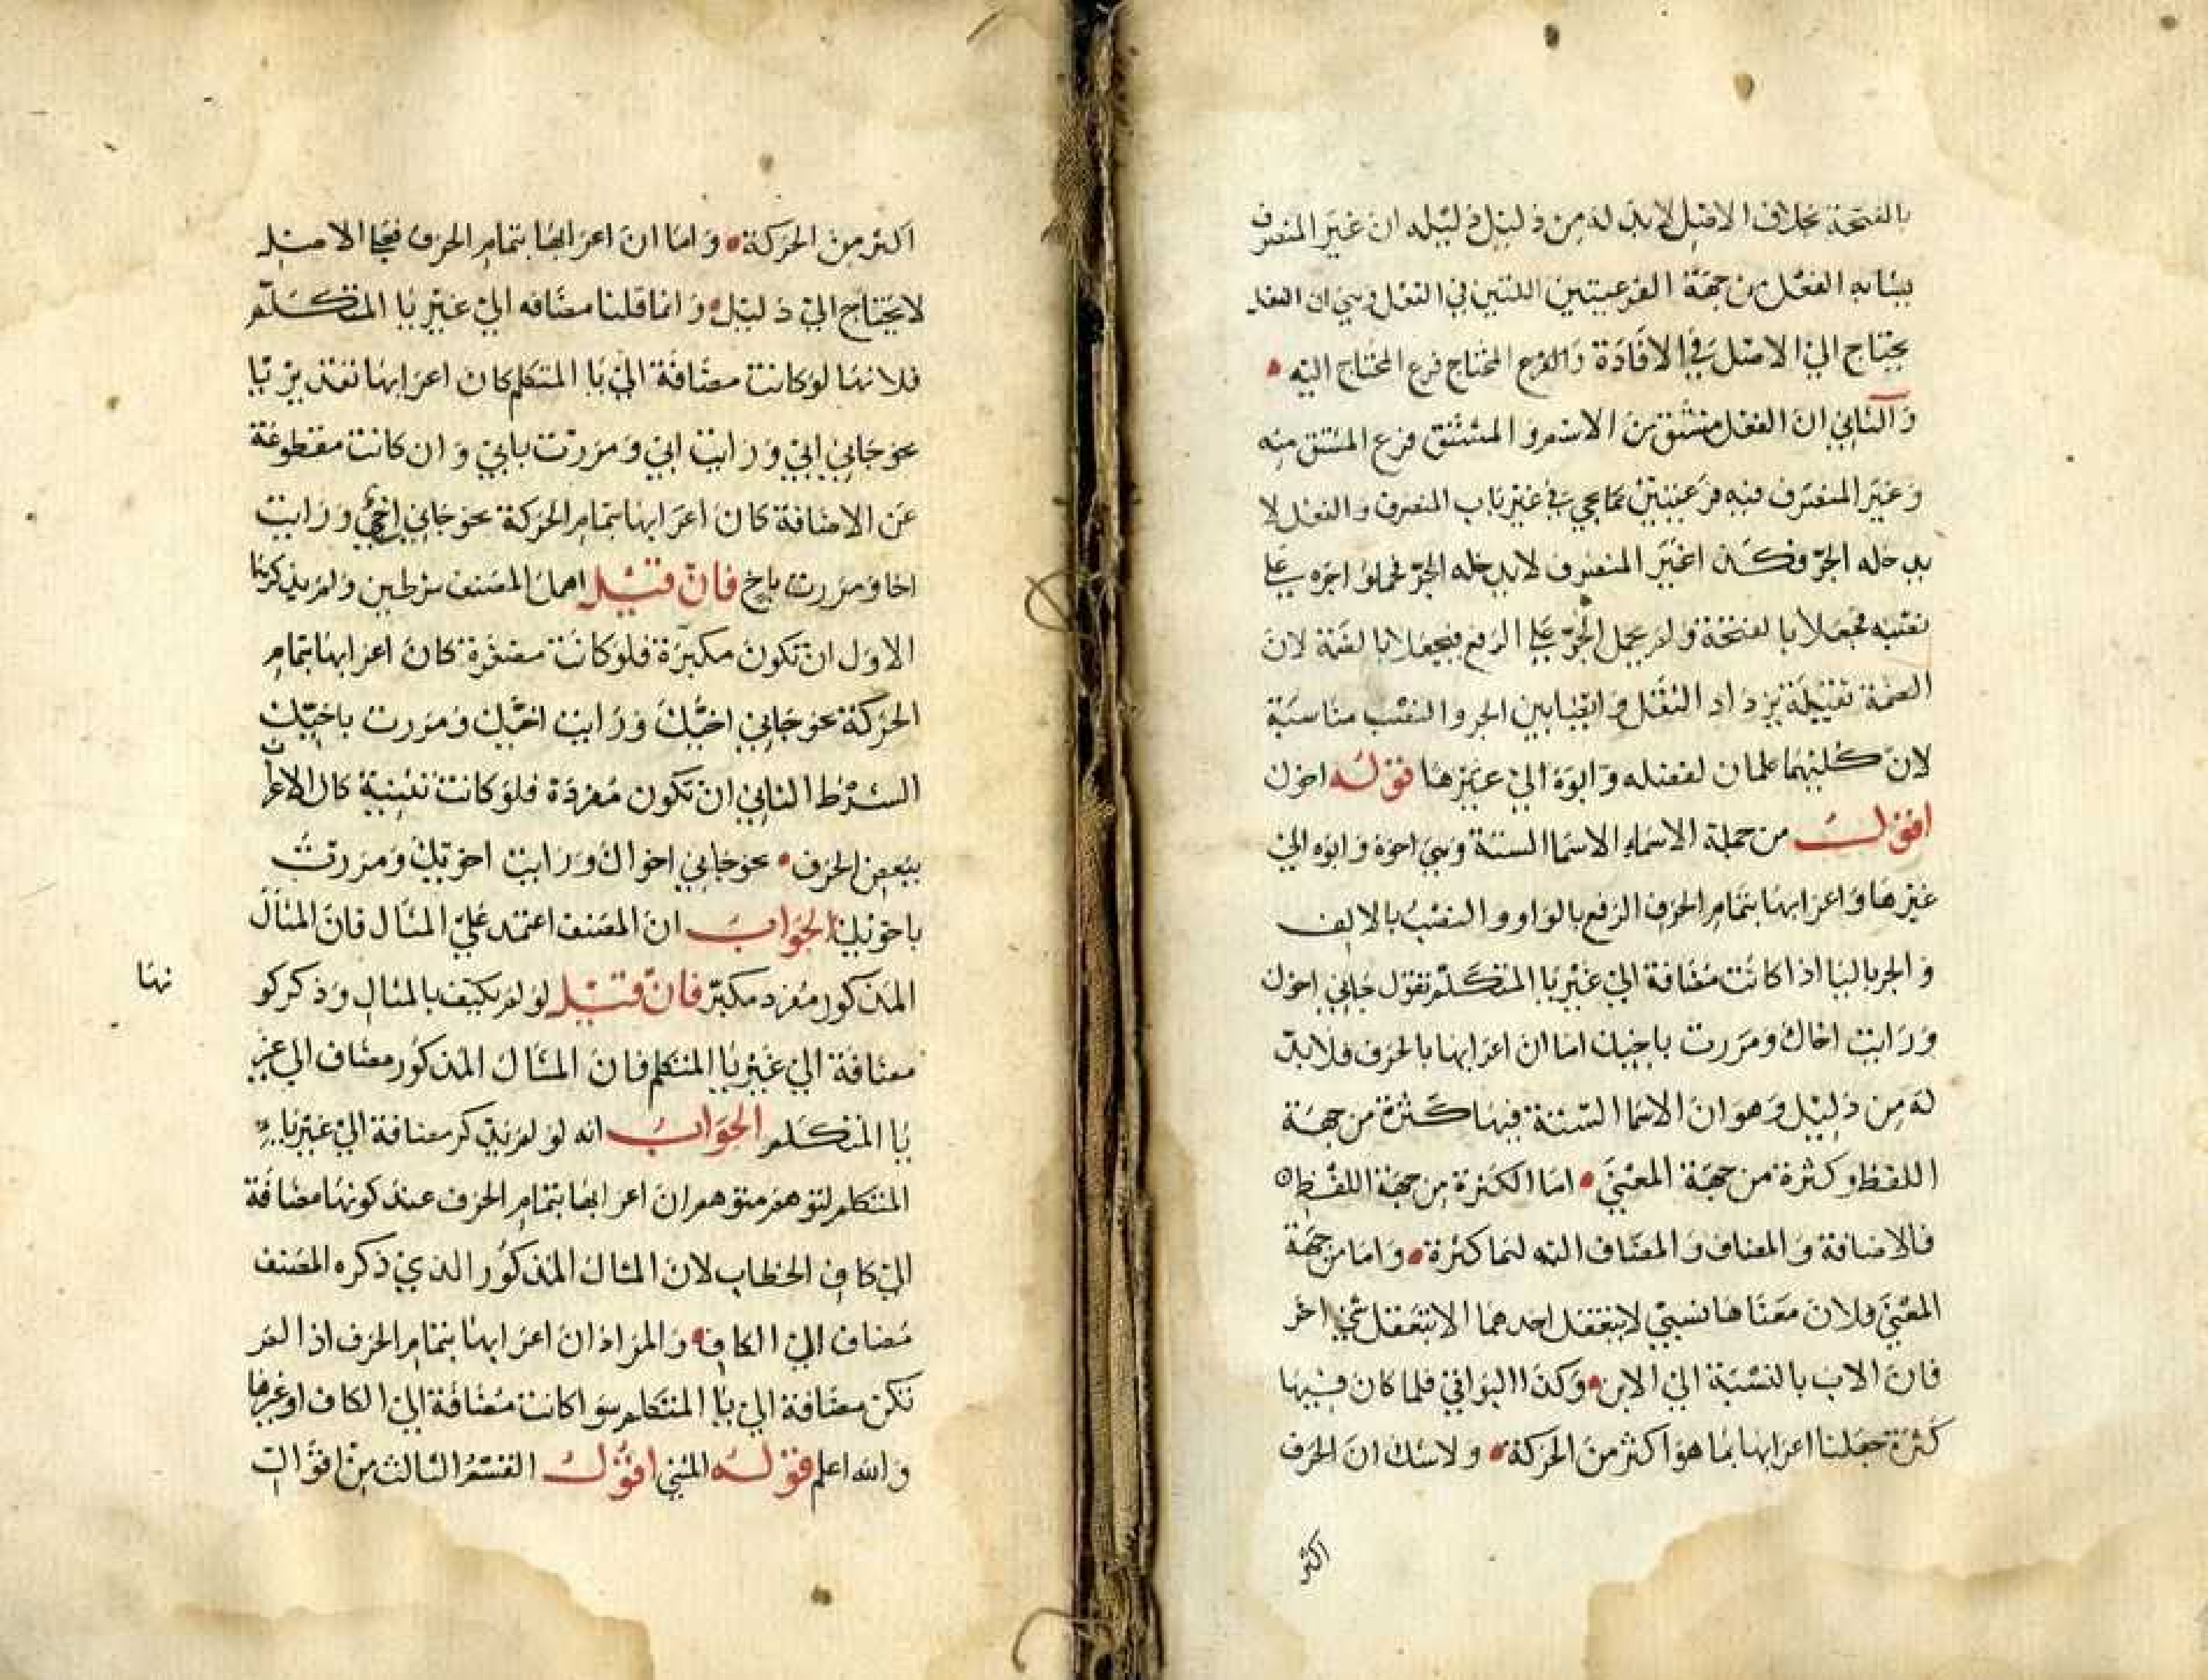 بالفتحة بخلاف الاصل لابد له من دليل دليله ان غير المنصرف
يشابه الفعل من جهة الفرعيتين اللتين في الفعل وهي ان الفعل
يحتاج الي الاصل في الافادة والفرع المحتاج فرع المحتاج اليه
والثاني ان الفعل مشتق من الاسم والمشتق فرع المشتق منه
وغير المنصرف فيه فرعيتين كما يجي في غير باب المنصرف والفعل لا
يدخله الجر فكذا غير المنصرف لا يدخله الجر فحملوا جره علي
نصبه فجعلا بالفتحة ولم يحمل الجر علي الرفع فيجعلا بالضمة لان
الضمة ثقيلة يزداد الثقل وايضا بين الجر والنصب مناسبة
لان كليهما علمان لفضله وابوه الي غيرها قوله اخوك
اقول من جملة الاسماء الاسما الستة وهي اخوه وابوه الي
غيرها واعرابها بتمام الحرف الرفع بالواو والنصب بالالف
والجر باليا اذا كانت مضافة الي غير يا المتكلم تقول جاني اخوك
ورايت اخاك ومررت باخيك اما ان اعرابها بالحرف فلابد
له من دليل وهو ان الاسما الستة فيها كثرة من جهة
اللفظ وكثرة من جهة المعني اما الكثرة من جهة اللفظ
فالاضافة والمضاف والمضاف اليه لها كثرة واما من جهة
المعني فلان معناها نسبي لا يتعقل احدهما الا بتعقل شي اخر
فان الاب بالنسبة الي الابن وكذا البواقي فلما كان فيها
كثرة جعلنا اعرابها بما هو اكثر من الحركة ولا شك ان الحرف
اكثر
اكثر من الحركة واما ان اعرابها بتمام الحرف فجا الاصل
لا يحتاج الي دليل وانما قلنا مضافه الي غير يا المتكلم
فلانها لو كانت مضافة الي يا المتكلم كان اعرابها تقديريا
نحو جاني ابي ورايت ابي ومررت بابي وان كانت مقطوعة
عن الاضافة كان اعرابها بتمام الحركة نحو جاني اخ ورايت
اخا ومررت باخ فان قيل اهمل المصنف شرطين ولم يذكرها
الاول ان تكون مكبرة فلو كانت مصغرة كان اعرابها بتمام
الحركة نحو جاني اخيك ورايت اخيك ومررت باخيك
الشرط الثاني ان تكون مفردة فلو كانت تثنية كان الاعراب
ببعض الحرف نحو جاني اخواك ورايت اخويك ومررت
باخويك الجواب ان المصنف اعتمد علي المثال فان المثال
المذكور مفرد مكبر فان قيل لو لم يكتف بالمثال وذكر كو
نها
مضافة الي غير يا المتكلم فان المثال المذكور مضاف الي غير
يا المتكلم الجواب انه لو لم يذكر مضافة الي غير يا
المتكلم لتوهم متوهم ان اعرابها بتمام الحرف عند كونها مضافة
الي كاف الخطاب لان المثال المذكور الذي ذكره المصنف
مضاف الي الكاف والمراد ان اعرابها بتمام الحرف اذا لم
تكن مضافة الي يا المتكلم سوا كانت مضافة الي الكاف او غيرها
والله اعلم قوله المثني اقول القسم الثالث من اقوال